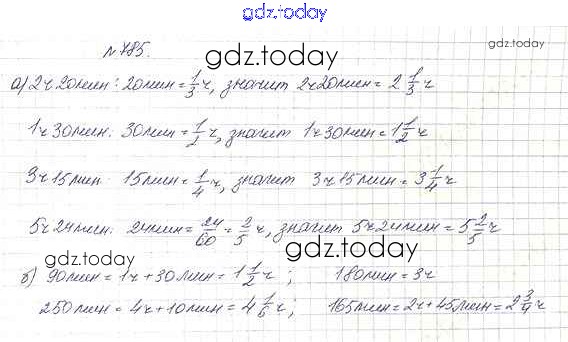 gdz.today
№785.
gdz.today
gdz.today
а) 2ч 20мин: 20мин = 1/3 ч, значит 2ч20мин = 2 1/3 ч
1ч 30мин: 30мин = 1/2 ч, значит 1ч30мин = 1 1/2 ч
3ч15мин: 15мин = 1/4 ч, значит 3ч15мин = 3 1/4 ч
5ч24мин: 24мин = 24/60 = 2/5 ч, значит 5ч24мин = 5 2/5 ч
gdz.today
gdz.today
б) 90мин = 1ч + 30мин = 1 1/2 ч; 180мин = 3ч
250мин = 4ч + 10мин = 4 1/6 ч; 165мин = 2ч + 45мин = 2 3/4 ч